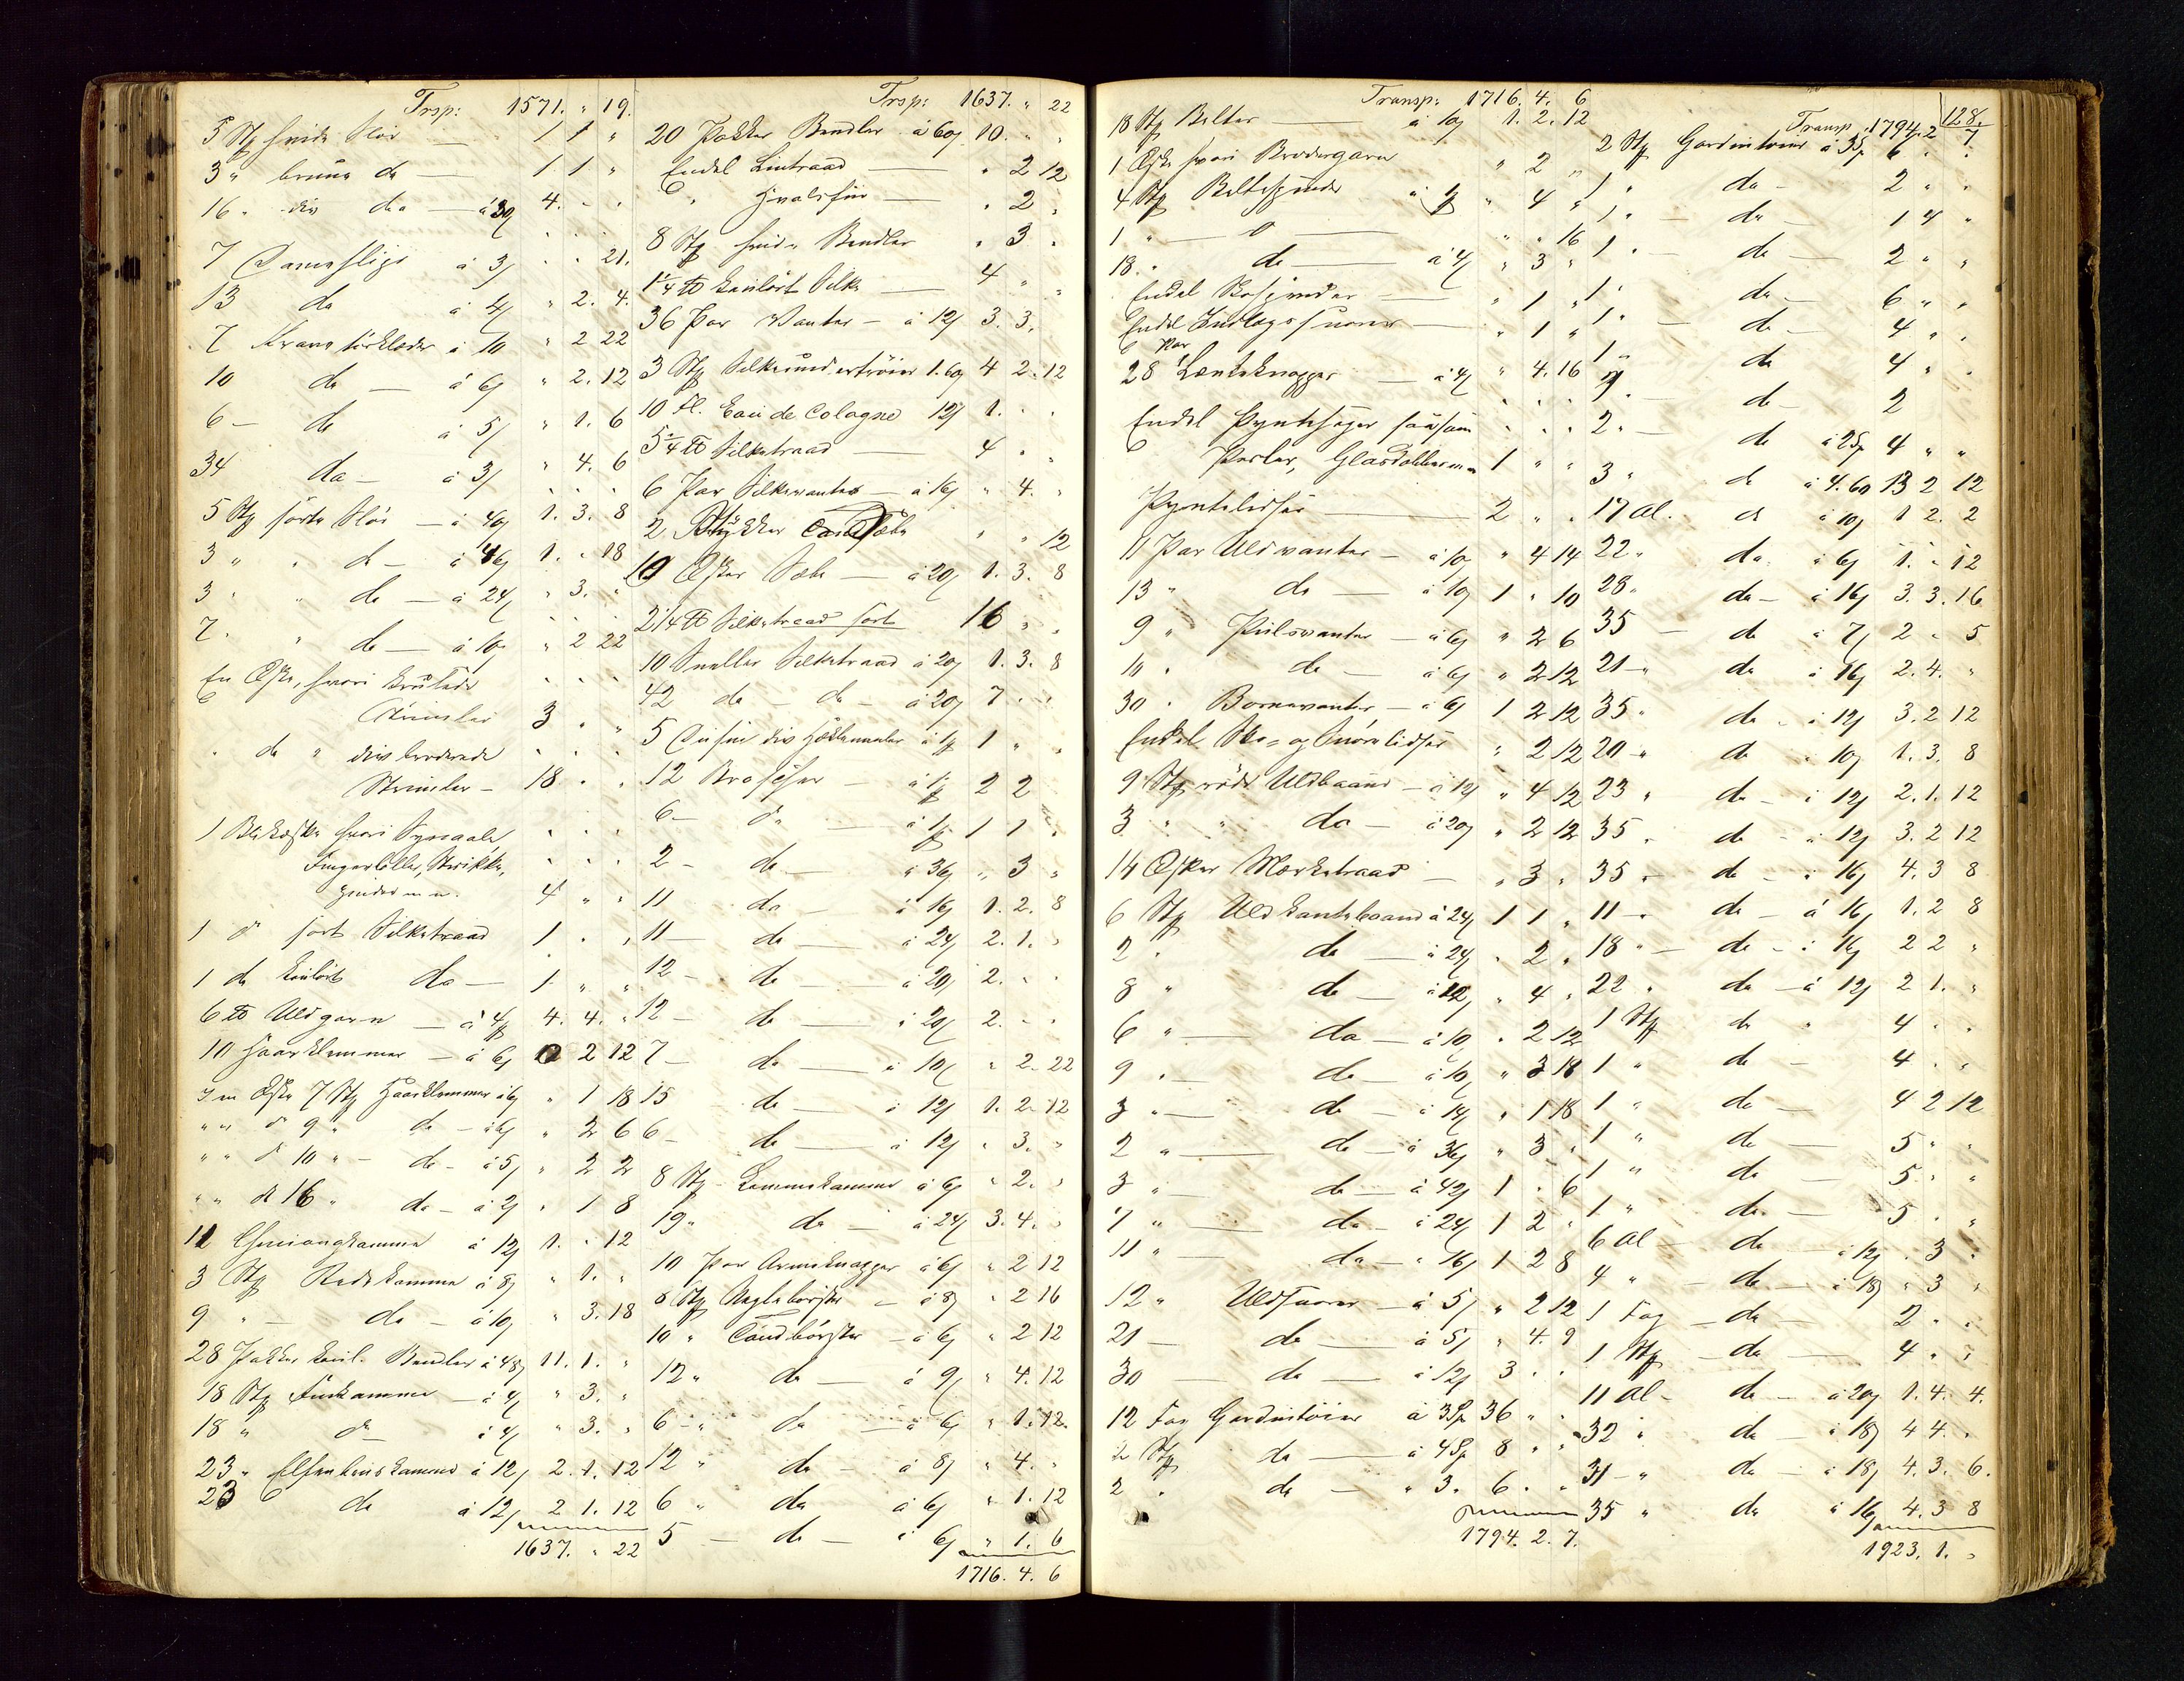 Trsp: 1571. " 19.
5 Stk hvide Slör — 1 1 "
3 " brune do — 1 1 "
16 " div do — à 30 4. " "
7 Dameslips à 3 " " 21.
13 do à 4 " 2. 4.
7 à 10 " 2 22
10 do — à 6 " 2. 12
6 — do à 5 " 1. 6
34 do — à 3 " 4. 6
5 Stk sorte Slör — à 40 1. 3. 8
3 " " do — à 46 1. " 18
3 " " do — à 24 " 3. "
7 " " do — à 10 " 2 22
En Æske, hvori
Strimler 3 " "
" do " div broderede
Strimler — 18 " "
1 hvori Synaale,
Fingerböller, Strikke,
pinder m.m. 4 " "
1 do sort Silketraad 1 " "
1 do kulört do — 1 " "
6 ℔ Uldgarn — à 4. 4. "
10 Haarklemmer — à 6 2 12
En Æske 7 Stk Haarklemmer à 6 " 1 18
" " do 9 " do — à 6 " 2 6
" " do 10 " — do — à 5 " 2 2
" " do 16 " do — à 2 " 1 8
11 à 12 1. " 12
3 Stk Redekamme à 8 " 1. "
9 " — do — à 10 " 3. 18
28 Pakker kul. Bendler à 48 11. 1. "
18 Stk — à 4 " 3. "
18 " do à 4 " 3. "
23 " Elfenbenskamme à 12 2. 1. 12
23 do à 12 2 1. 12
1637. " 22
Trsp: 1637. " 22
20 Pakker Bendler à 60 10. " "
Endel Lintraad — " 2 12
" — " 2 "
8 Stk hvide Bendler " 3 "
1¼ ℔ kulört Silke — 4 " "
36 Par Vanter — à 12 3. 3.
3 Stk Silkeundertröier 1.60 4 2. 12
10 Fl. Eau de Cologne 12 1. " "
5¼ ℔ Silketraad — 4 " "
6 Par Silkevanter — à 16 " 4. "
2 Stykker Sæbe " " 12
10 Æsker Sæbe — à 20 1. 3. 8
2¼ ℔ Silketraad sort 16 " "
10 Sneller Silketraad à 20 1. 3. 8
42 do — do — à 20 7 " "
5 Dusin div Hæklenaale 1 " "
12 — 2 2
6 — do — 1 1 "
2 — do — à 36 " 3 "
11 do — à 16 1. 2. 8
11 — do — à 24 2. 1. "
12 — do — à 20 2. " "
12 — do — à 20 2. " "
7 — do — à 10 " 2. 22
15 do — à 12 1. 2. 12
6 — do — à 12 " 3. "
8 Stk Lommekamme à 6 " 2. "
19 " do — à 24 3. 4. "
10 Par Ærmeknapper à 6 " 2 12
8 Stk Neglebörster — à 8 " 2 16
10 " Tandbörster — à 6 " 2 12
12 " do — à 9 " 4. 12
6 — " do — à 6 " 1. 12.
12 " do — à 8 " 4. "
6 " do à 6 " 1. 12
5 — do — à 6 " 1. 6
1716. 4. 6
Transp: 1716. 4. 6
18 Stk Belter — à 10 1. 2. 12
1 Æske hvori Brodergarn " 2 "
4 Stk Beltespænder " 4 "
1 " — do — " " 16
18 " do — à 4 " 3 "
Endel — " 1 "
Endel — " 1 "
Par
28 — à 4 " 4. 16
Endel Pyntesager saasom " " "
Perler, m.m. 1 " "
Pyntelidser — 2 " "
11 Par Uldvanter — à 10 " 4 14
13 " do — à 10 1 " 10
9 " Pulsvanter — à 6 " 2 6
10 " do — à 6 " 2 12
30 " Börnevanter — à 6 1 2 12
Endel Sko- og Snörelidser " 2 12
9 Stk röde Uldbaand — à 12 " 4 12
3 " " do — à 20 " 2 12
14 Æsker Mærketraad — " 3 "
6 Stk Uldkantebaand à 24 1 1 "
2 " do — à 24 " 2 "
8 " do — à 12 " 4 "
6 " — do — à 10 " 2 12
9 " — do — à 10 " 3 18
3 " — do — à 14 " 1 18
2 " — do — à 36 " 3 "
3 " — do — à 42 1 " 6
7 " — do — à 24 1 2 "
11 " — do — à 16 1 2 8
12 " Uldsnore — à 5 " 2 12
21 — do — à 5 " 4. 9
30 — do — à 12 3 " "
12 Fag Gardintöier à 3 Sp 36 " "
2 Stk do — à 4 Sp 8 " "
2 " do — " 3. 6. "
1794. 2. 7.
128.
Transp. 1794. 2 7
2 Stk Gardintöier à 3 Sp 6 " "
1 " do — 2 " "
1 " — do — 1 4 "
1 " — do — 2 " "
1 " do — 6 " "
1 " — do — 4 " "
1 " do 4 " "
1 " — do — 2
2 " — do à 2 Sp 4 " "
3 " do à 4.60 13 2 12
17 Al. do à 10 1 2. 2
22 " do à 6 1. " 12
28 " do — à 16 3. 3. 16
35 — do à 7 2 " 5
21 — " do à 16 2. 4. "
35 " do — à 12 3. 2 12
20 — " do à 10 1. 3. 8
23 " do — à 12 2. 1. 12
35 " do — à 12 3. 2 12
35 " do — à 16 4. 3 8
11 — " do — à 16 1. 2 8
18 " — do — à 16 2 2 "
22 " do — à 12 2 1. "
1 Stk do " 4 " "
1 " do — 4 " "
1 " do — 4 2 12
1 " do — 5 " "
1 " do — 5 " "
1 " do — 5 " "
6 Al — do — à 12 " 3 "
4 " — do — à 18 " 3 "
1 Fag — do — 2 " "
1 Stk — do — 4 " "
11 Al — do — à 20 1. 4. 4.
32 " do — à 18 4 4. "
31 — " do — à 18 4. 3. 6.
35 " do à 16 4. 3 8
1923. 1. "